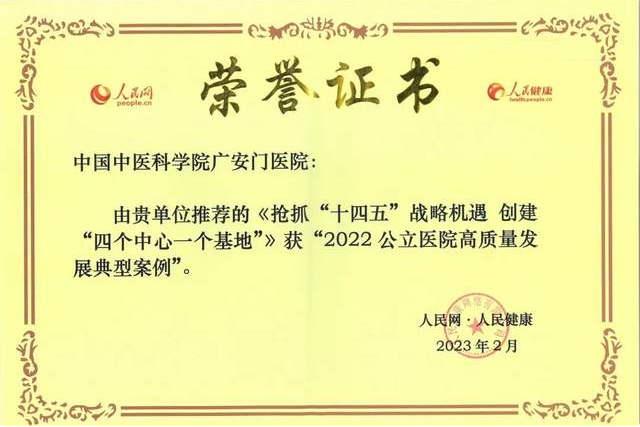 人民网
people.cn
荣誉证书
人民健康
health.people.cn
中国中医科学院广安门医院：
由贵单位推荐的《抢抓“十四五”战略机遇 创建
“四个中心一个基地”》获“2022公立医院高质量发
展典型案例”。
人民网·人民健康
2023年2月